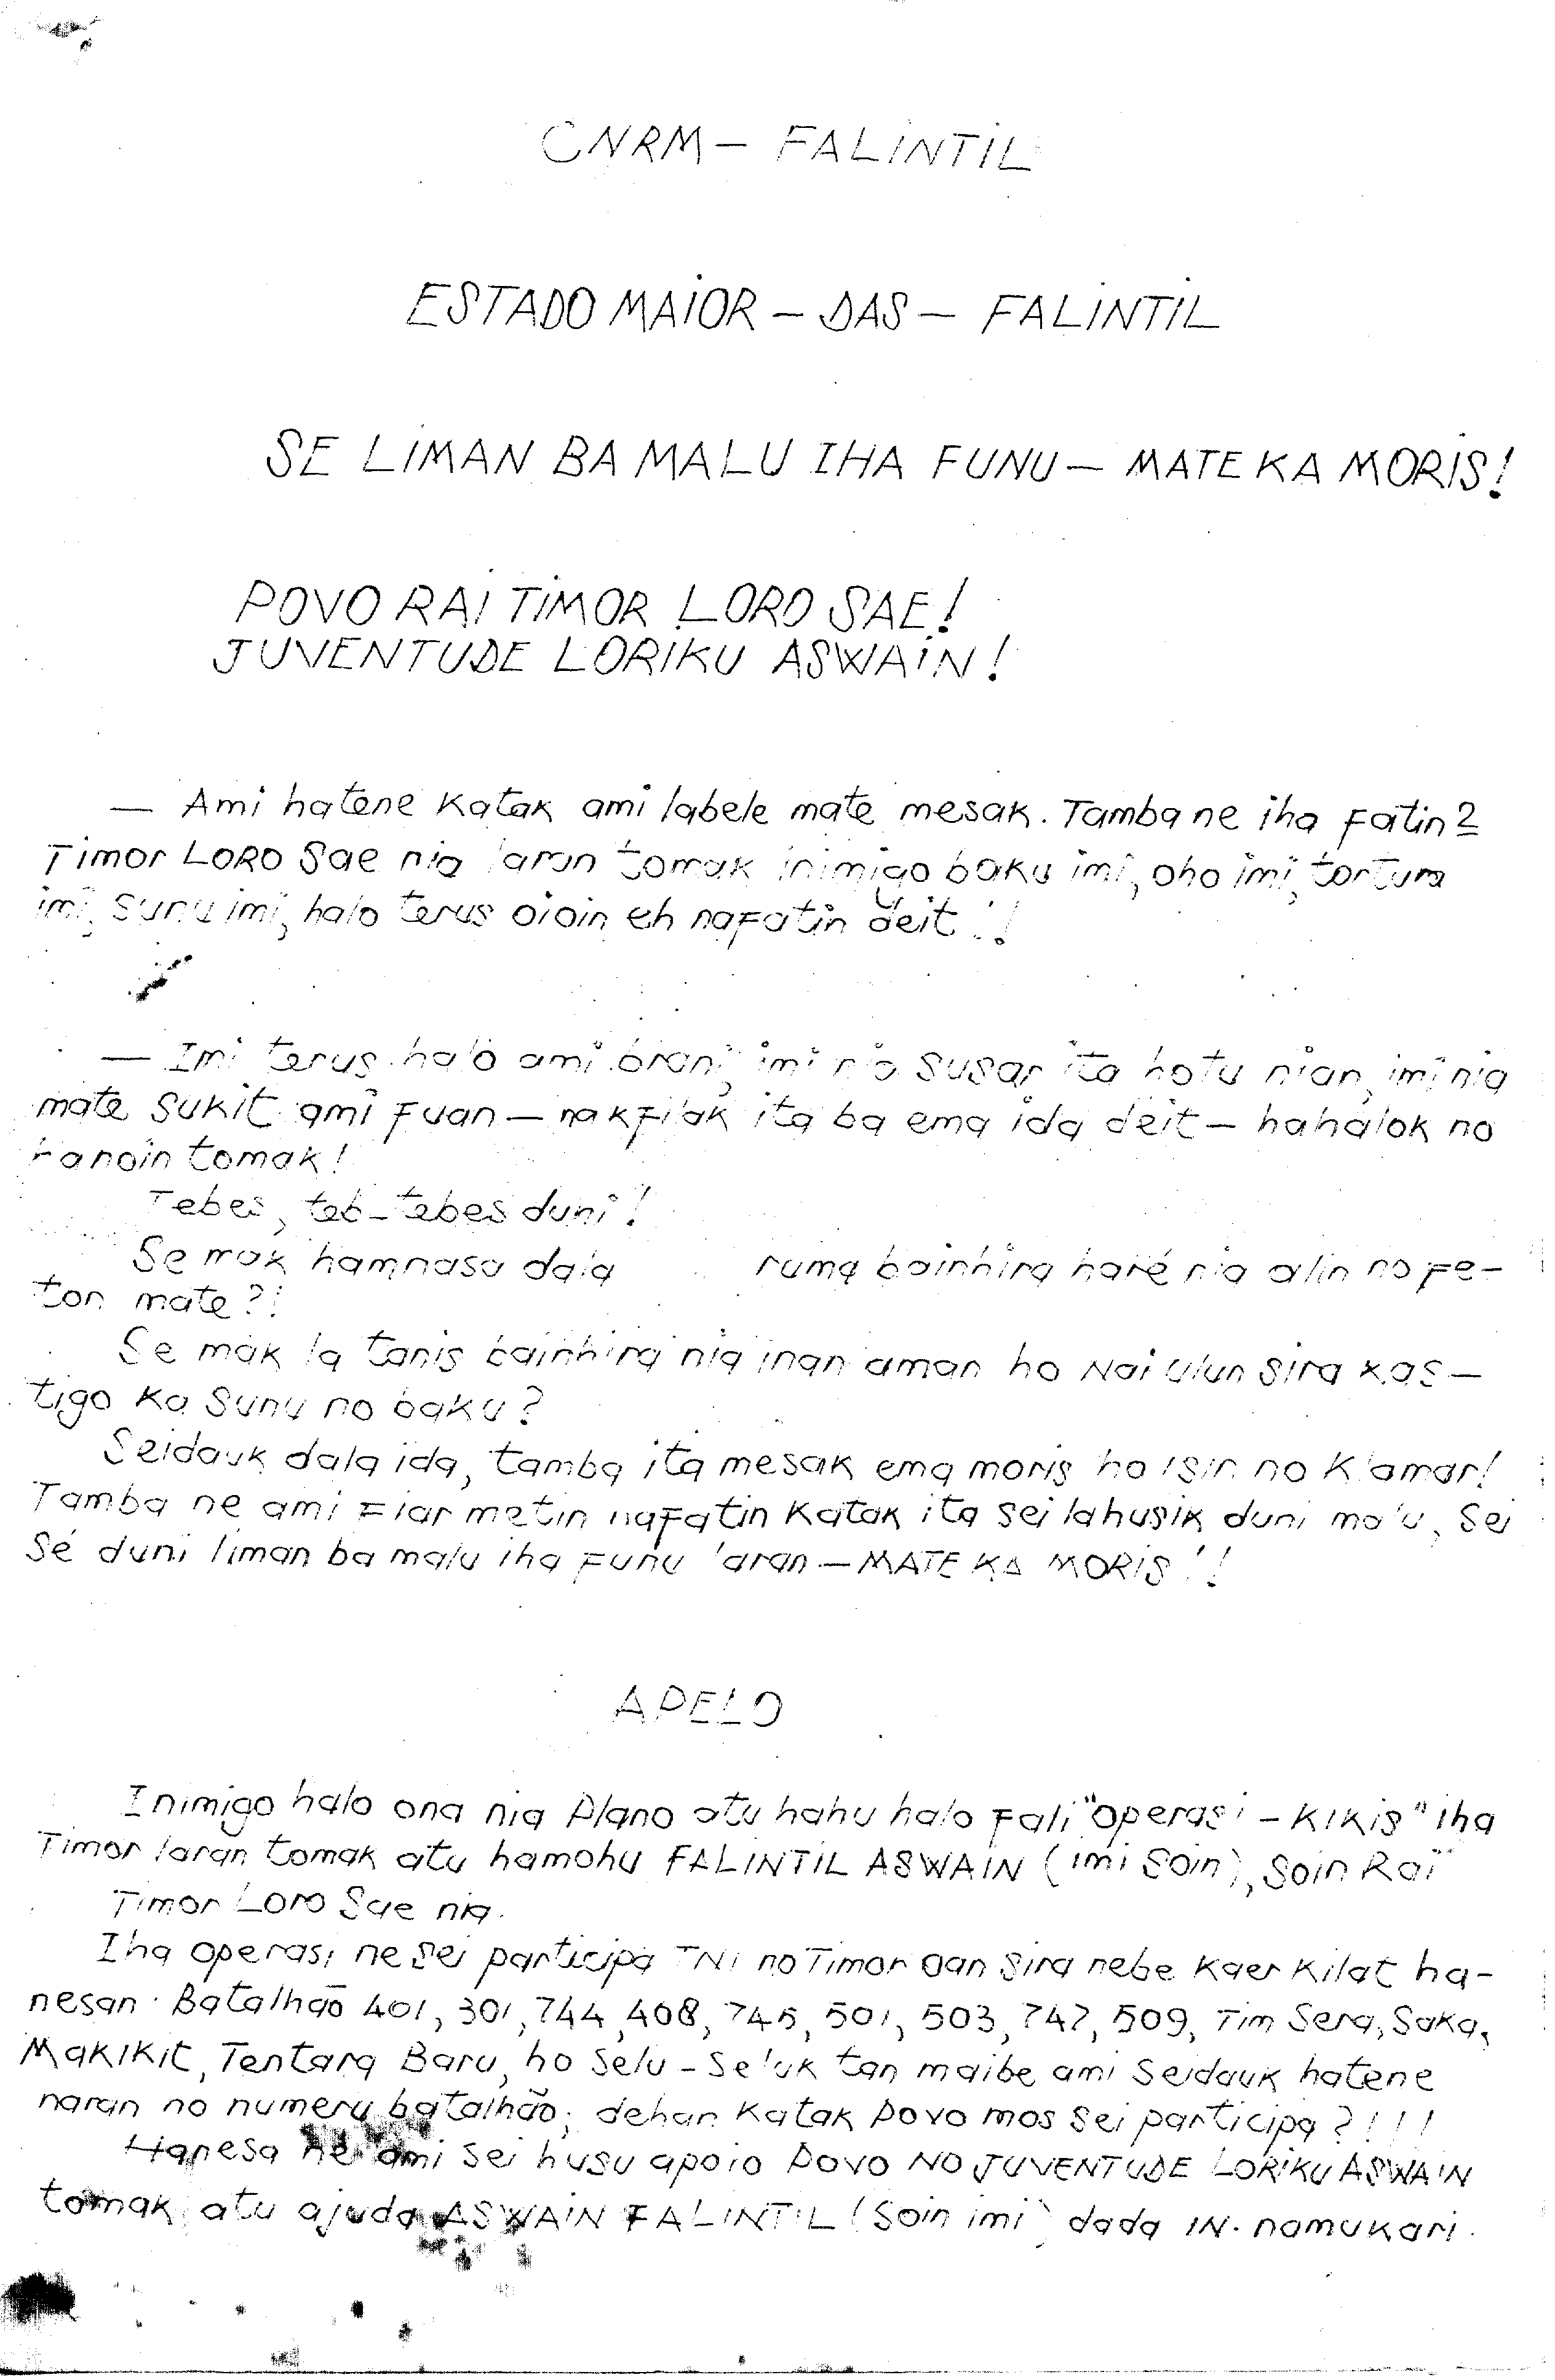 CNRM – FALINTIL
ESTADO MAIOR – DAS – FALINTIL
SE LIMAN BA MALU IHA FUNU – MATE KA MORIS!
POVO RAI TIMOR LORO SAE!
JUVENTUDE LORIKU ASWAIN!
— Ami hatene katak ami labele mate mesak. Tamba ne iha fatin2
Timor LORO Sae nia laran tomak inimigo baku imi, oho imi, tortura
imi, sunu imi, halo terus oioin eh nafatin deit!!
— Imi terus halo ami brani, imi nia susar ita hotu nian, imi nia
mate sukit ami fuan – nakfilak ita ba ema ida deit – hahalok no
hanoin tomak!
Tebes, teb-tebes duni!
Se mak hamnasa dala ruma bainhira haré nia alin no fe-
ton mate?!
Se mak la tanis bainhira nia inan aman ho Nai Ulun sira kas-
tigo ka sunu no baku?
Seidauk dala ida, tamba ita mesak ema moris ho isin no klamar!
Tamba ne ami fiar metin nafatin katak ita sei la husik duni malu, sei
sé duni liman ba malu iha funu laran – MATE KA MORIS!!
APELO
Inimigo halo ona nia plano atu hahu halo fali "operasi – KIKIS" iha
Timor laran tomak atu hamohu FALINTIL ASWAIN (imi soin), soin Rai
Timor Loro Sae nia.
Iha operasi ne sei participa TNI no Timor oan sira nebe kaer kilat ha-
nesan: Batalhão 401, 301, 744, 408, 745, 501, 503, 747, 509, Tim Sera, Saka,
Makikit, Tentara Baru, ho selu-seluk tan maibe ami seidauk hatene
naran no numeru batalhão; dehan katak povo mos sei participa?!!!
Hanesa ne ami sei husu apoio povo NO JUVENTUDE LORIKU ASWAIN
tomak atu ajuda ASWAIN FALINTIL (soin imi) dada IN. namukari.